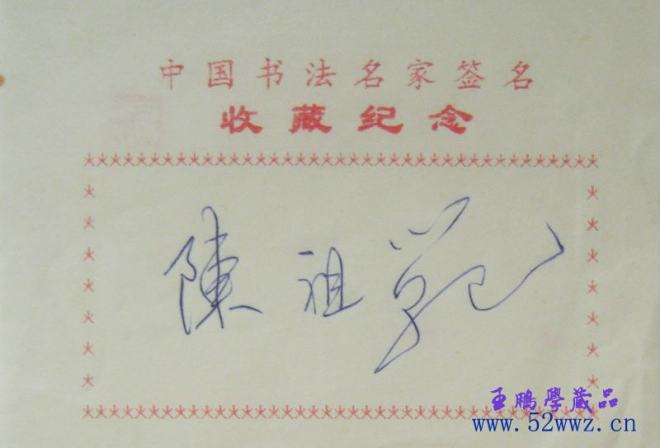 中国书法名家签名
收藏纪念
陳祖範
王鹏學藏品
www.52wwz.cn